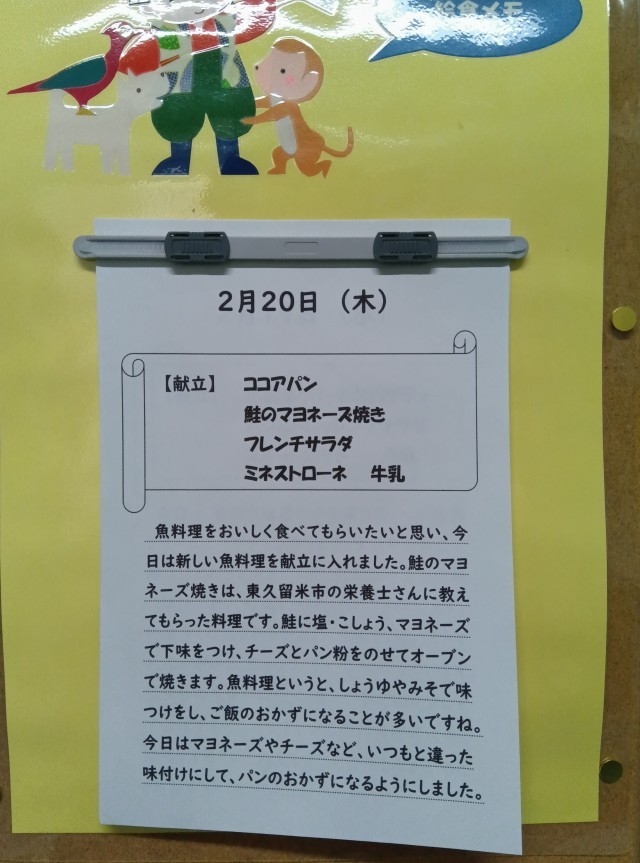 給食メモ
2月20日（木）
【献立】 ココアパン
鮭のマヨネーズ焼き
フレンチサラダ
ミネストローネ 牛乳
魚料理をおいしく食べてもらいたいと思い、今
日は新しい魚料理を献立に入れました。鮭のマヨ
ネーズ焼きは、東久留米市の栄養士さんに教え
てもらった料理です。鮭に塩・こしょう、マヨネーズ
で下味をつけ、チーズとパン粉をのせてオーブン
で焼きます。魚料理というと、しょうゆやみそで味
つけをし、ご飯のおかずになることが多いですね。
今日はマヨネーズやチーズなど、いつもと違った
味付けにして、パンのおかずになるようにしました。